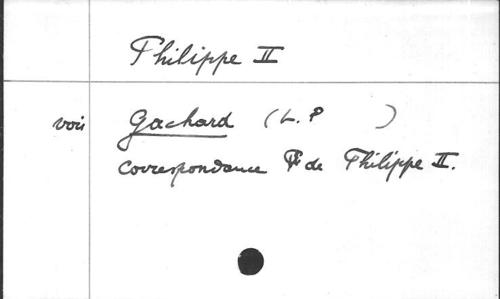 Philippe II
voir Gachard (L. P )
Correspondance de Philippe II.